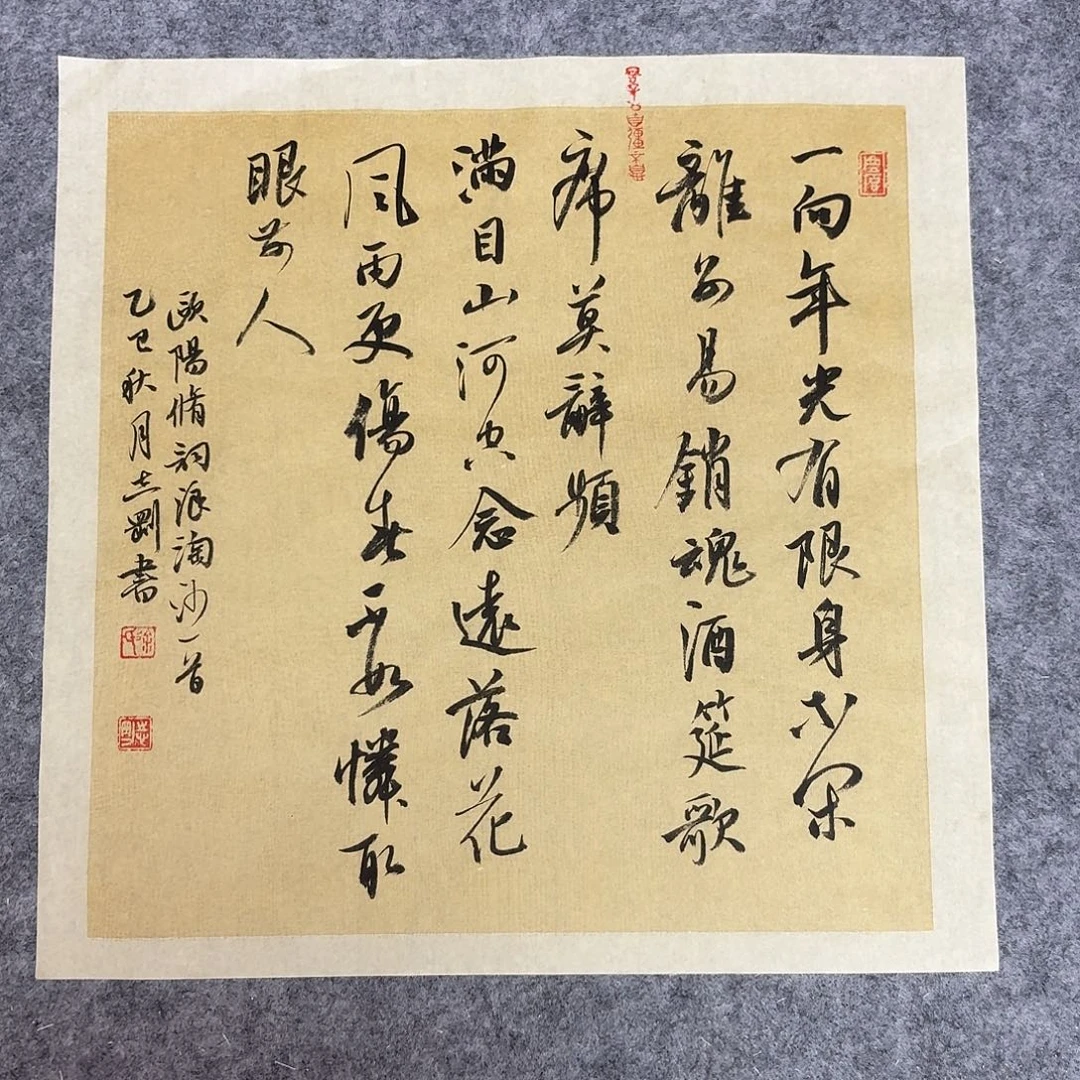 一向年光有限身等閑
離別易銷魂酒筵歌
席莫辭頻
滿目山河空念遠落花
風雨更傷春不如憐取
眼前人
歐陽脩詞浪淘沙一首
乙巳秋月志剛書